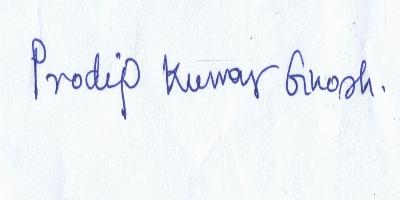 Prodip Kumar Ghosh.